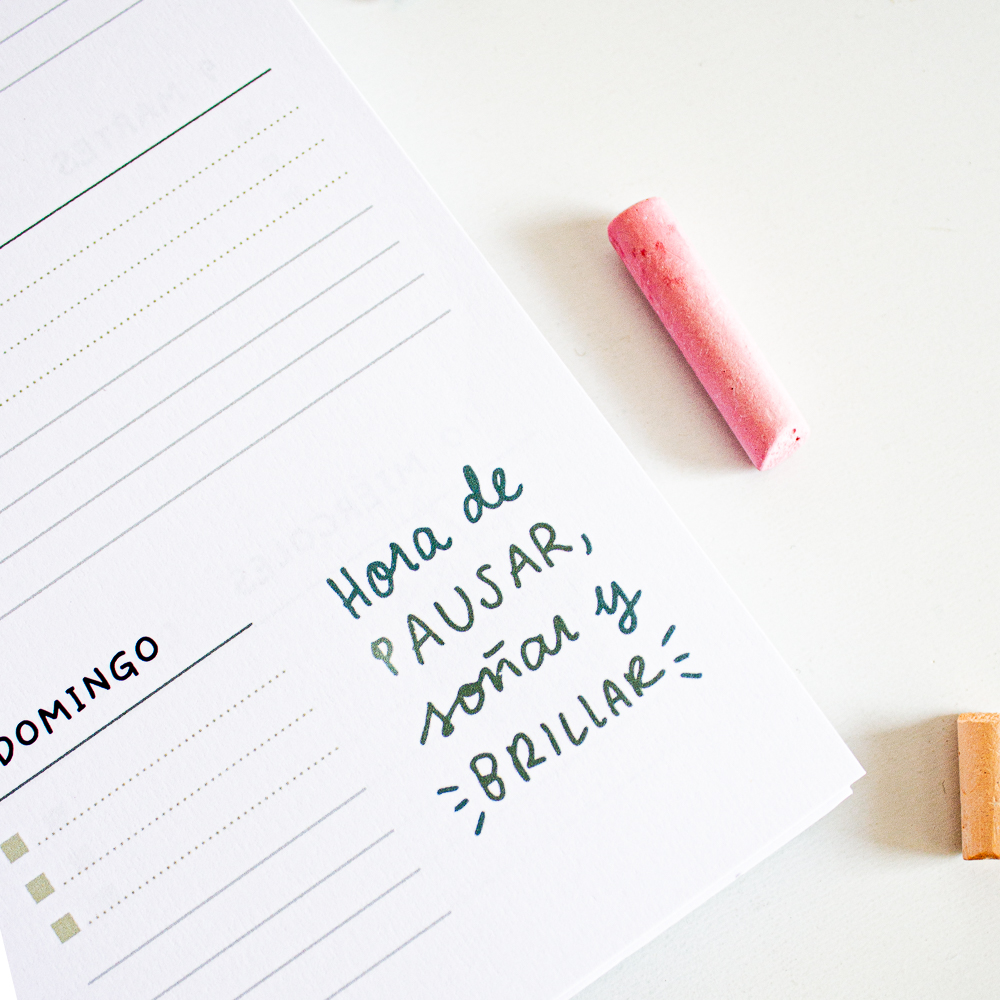 DOMINGO
Hora de
PAUSAR,
soñar y
BRILLAR